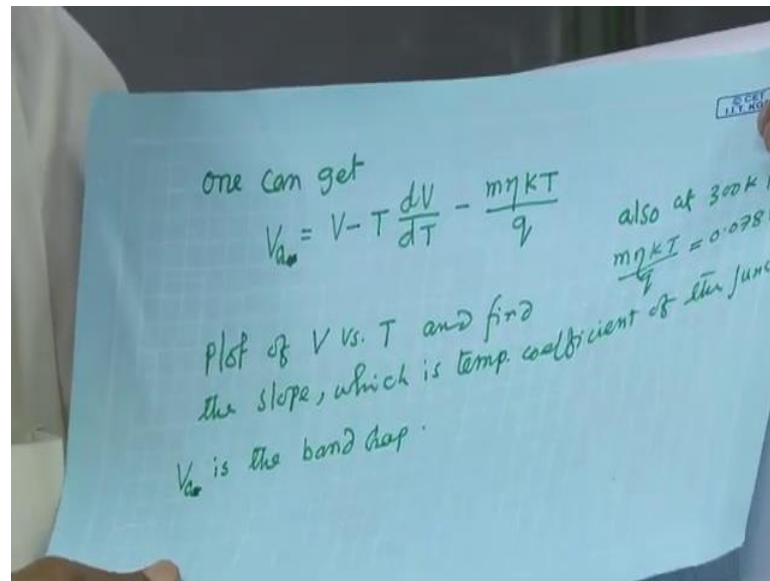 © CET
I.I.T. KG
one can get
V = V - T dV/dT - mηKT/q
also at 300K
mηKT/q = 0.078
plot of V vs. T and find
the slope, which is temp. coefficient of the junc
is the band Gap.